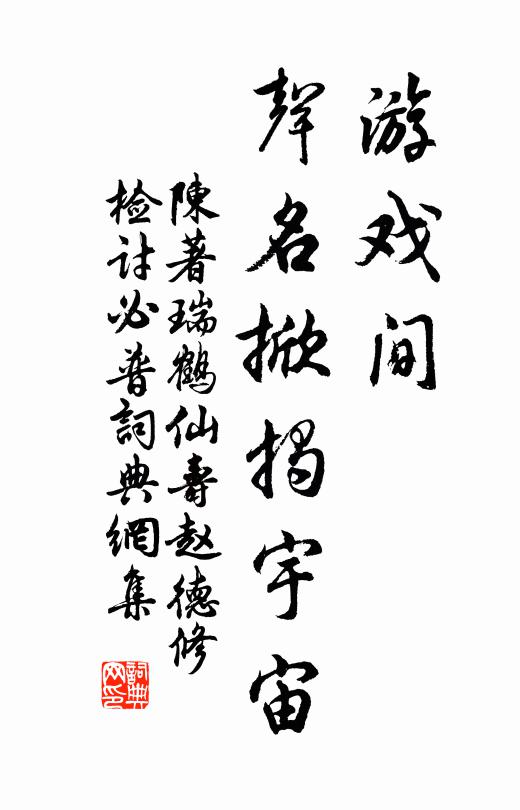 游戏间
聲名掀揭宇宙
陳著瑞鶴仙壽赵德修
检讨必普詞典網集
詞典網印